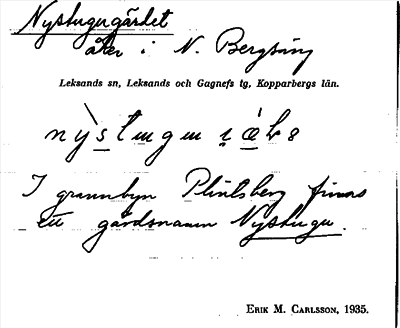 Nystugugärdet
åker i N. Bergsäng
Leksands sn, Leksands och Gagnefs tg, Kopparbergs län.
I grannbyn Plintsberg finnes
ett gårdsnamn Nystugu.
ERIK M. CARLSSON, 1935.